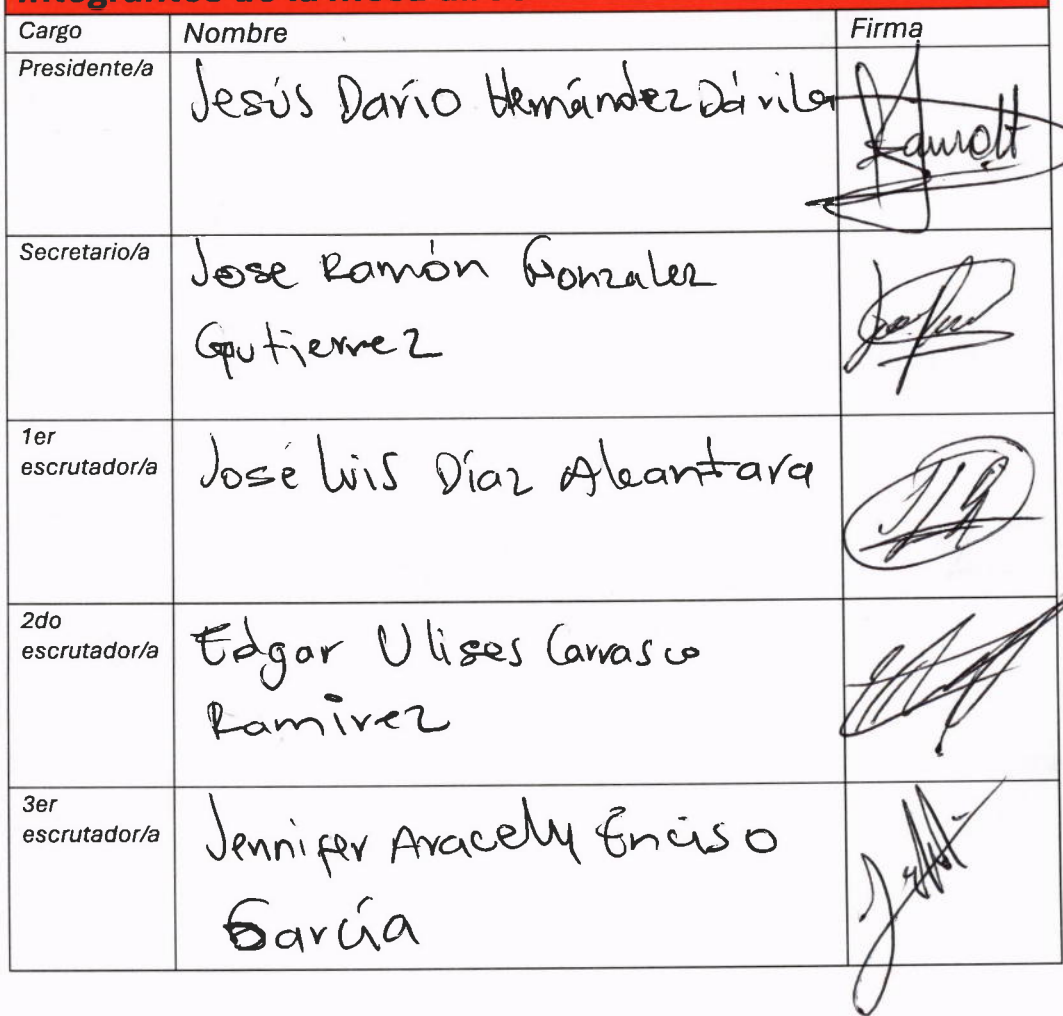 Integrantes de la mesa
Cargo Nombre Firma
Presidente/a Jesús Darío Hernández Dávila
Secretario/a Jose Ramón Gonzalez
Gutierrez
1er
escrutador/a José Luis Díaz Alcantara
2do
escrutador/a Edgar Ulises Carrasco
Ramirez
3er
escrutador/a Jennifer Aracely Enciso
García